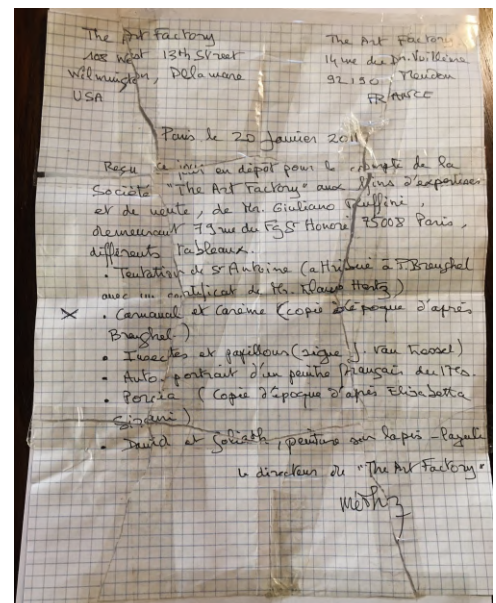 The Art Factory
108 West 13th Street
Wilmington, Delaware
USA
The Art Factory
14 rue du Dr. Vuillième
92190 Meudon
FRANCE
Paris le 20 Janvier
Reçu ce jour en dépôt pour le compte de la
Société "The Art Factory" aux fins d'expertises
et de vente, de Mr. Giuliano Ruffini,
demeurant 79 rue du Fg St Honoré 75008 Paris,
différents tableaux.
• Tentation de St Antoine (attribué à P. Breughel
avec un certificat de Mr. Klaus Hertz)
X • Carnaval et Carème (copie d'époque d'après
Breughel.)
• Insectes et papillons (signé J. van Kessel)
• Auto-portrait d'un peintre français du 17es.
• Porcia (Copie d'époque d'après Elisabetta
Sirani)
• David et Goliath, peinture sur lapis-lazuli
Le directeur de "The Art Factory"